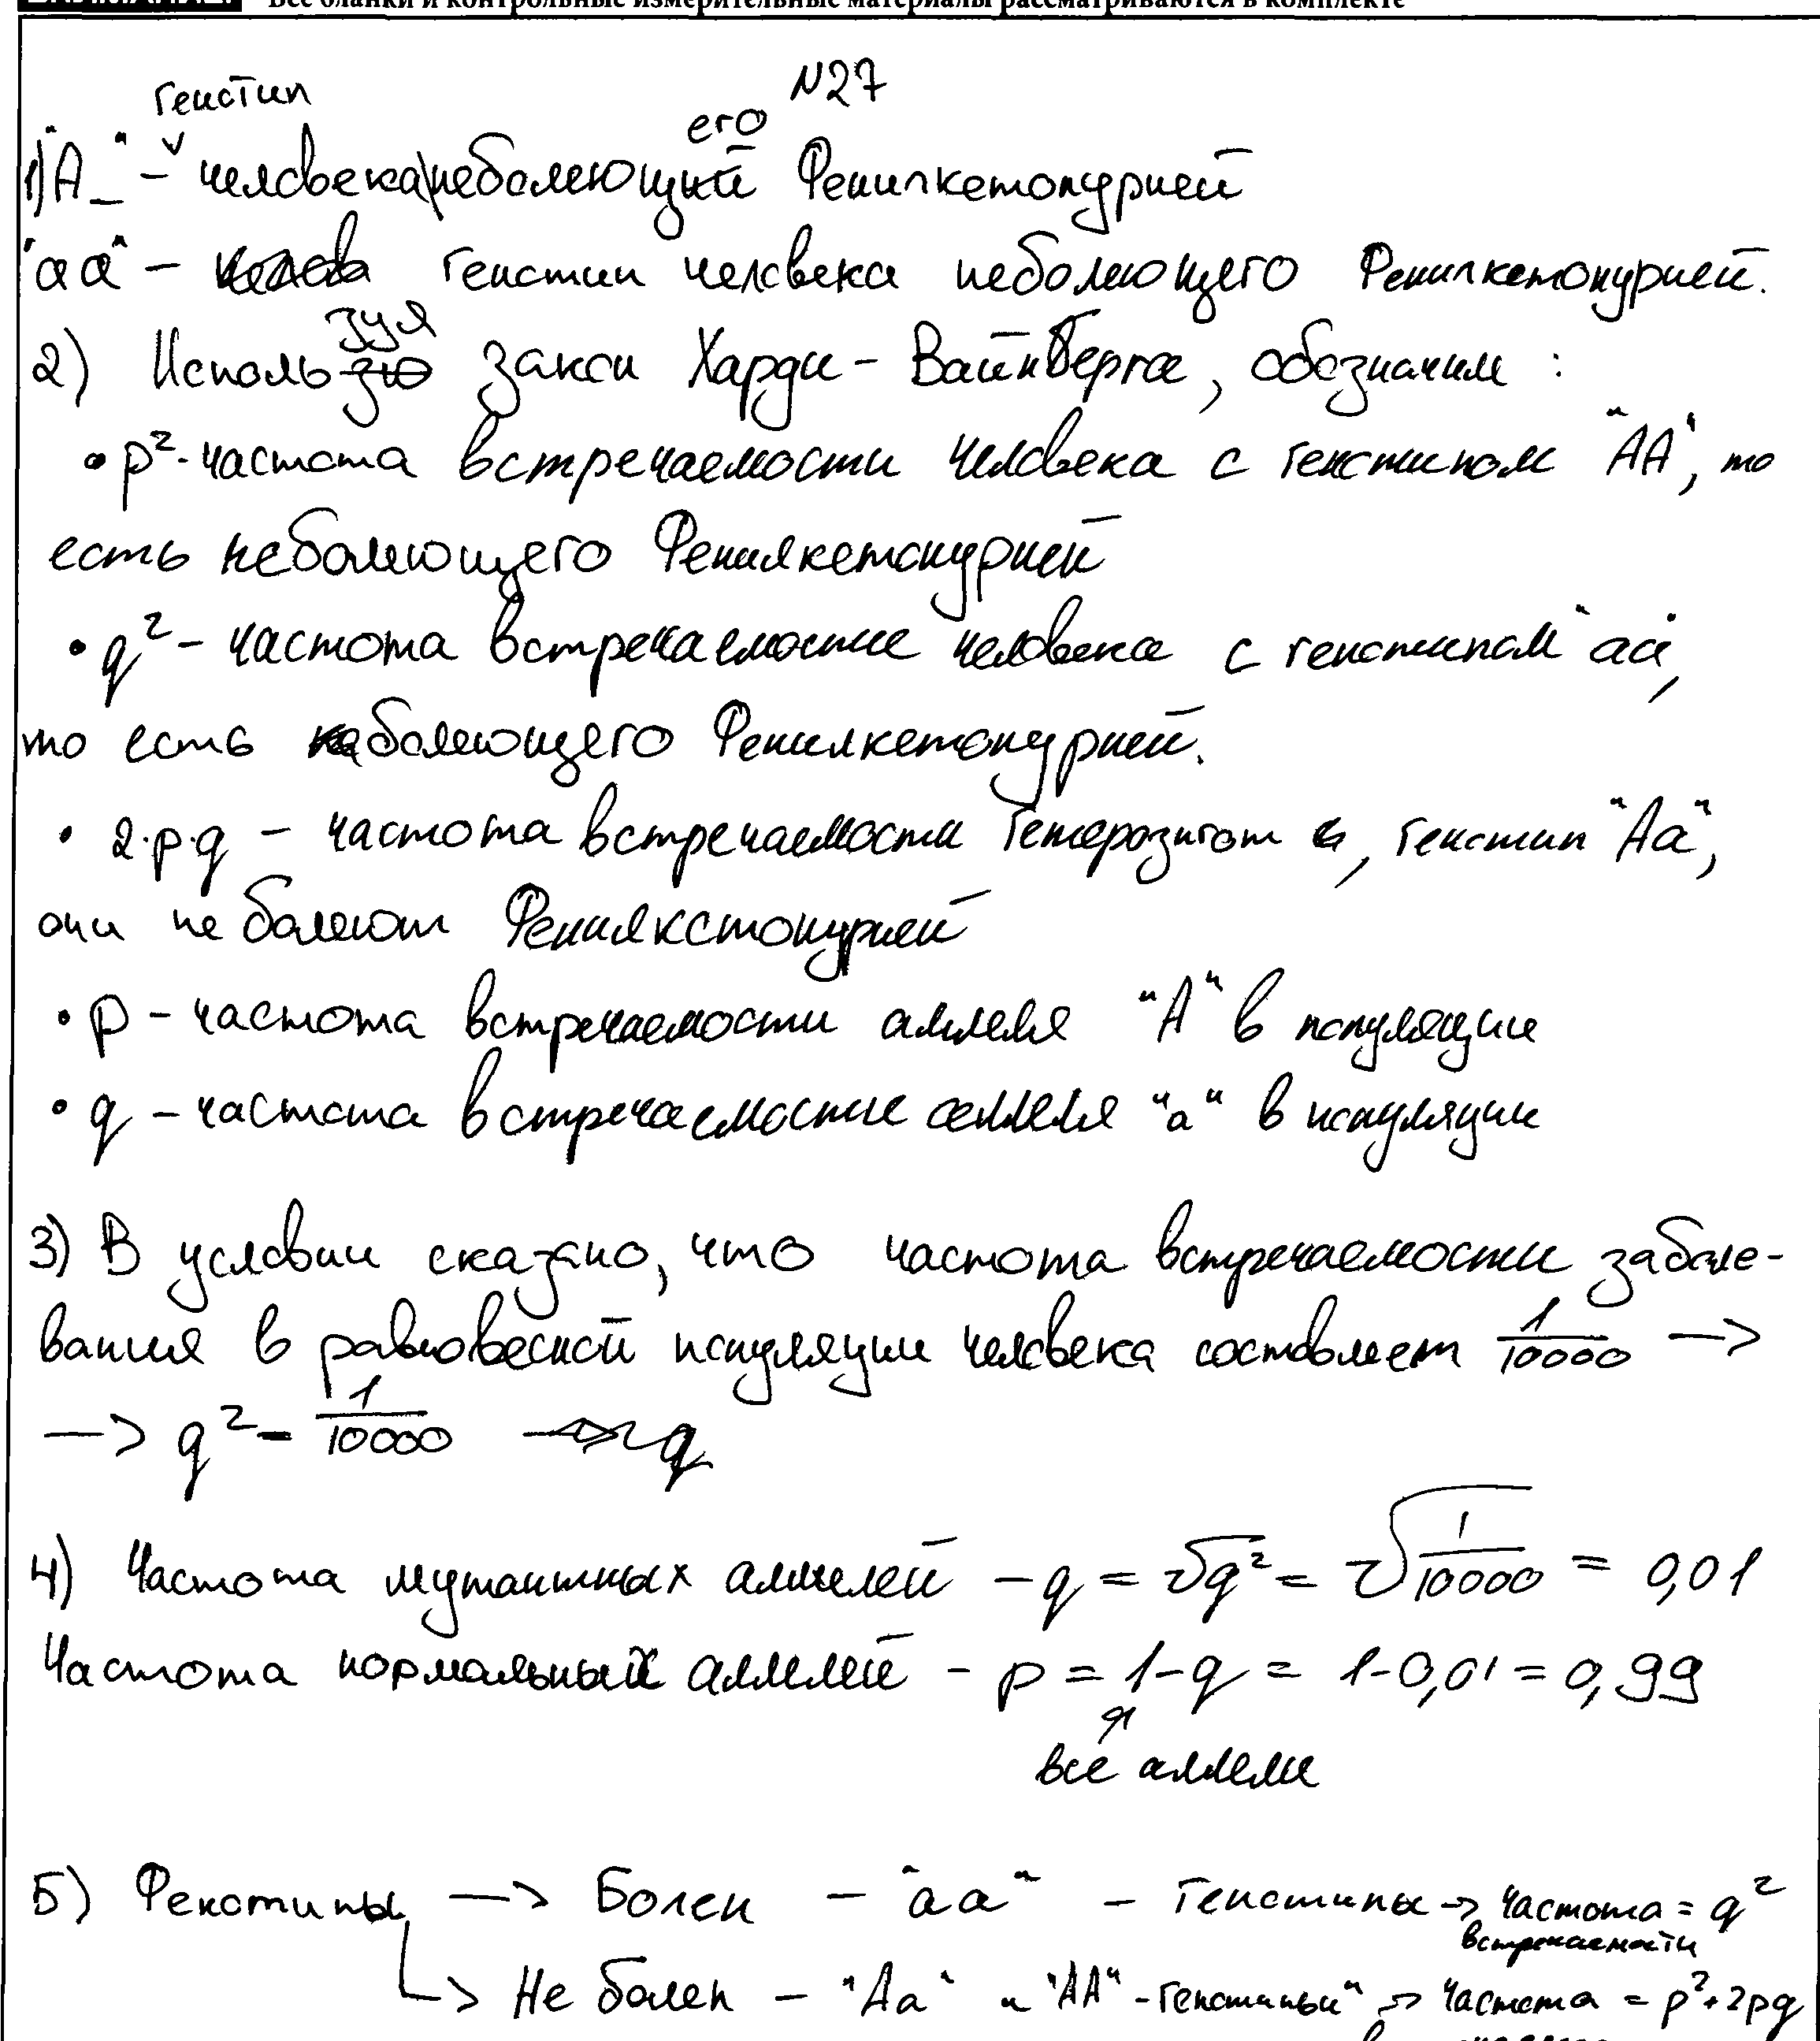 Все бланки и контрольные измерительные материалы рассматриваются в комплекте
N27
генотип
его
1) "А_" - человека неболеющий Фенилкетонурией
"аа" - генотип человека неболеющего Фенилкетонурией.
зуя
2) Использую закон Харди - Вайнберга, обозначим :
• p²-частота встречаемости человека с генотипом "АА", то
есть неболеющего Фенилкетонурией
• q² - частота встречаемости человека с генотипом "аа",
то есть болеющего Фенилкетонурией.
• 2·p·q - частота встречаемости Гетерозигот , генотип "Аа",
они не болеют Фенилкетонурией
• p - частота встречаемости аллеля "А" в популяции
• q - частота встречаемости аллеля "а" в популяции
3) В условии сказано, что частота встречаемости заболе-
вания в равновесной популяции человека составляет 1/10000 ->
-> q² = 1/10000 -> q
4) Частота мутантных аллелей - q = √q² = √1/10000 = 0,01
Частота нормальных аллелей - p = 1-q = 1-0,01 = 0,99
все аллели
5) Фенотипы -> Болен - "аа" - генотипы -> частота = q²
встречаемости
-> Не болен - "Аа" и "АА" - генотипы -> частота = p²+2pq